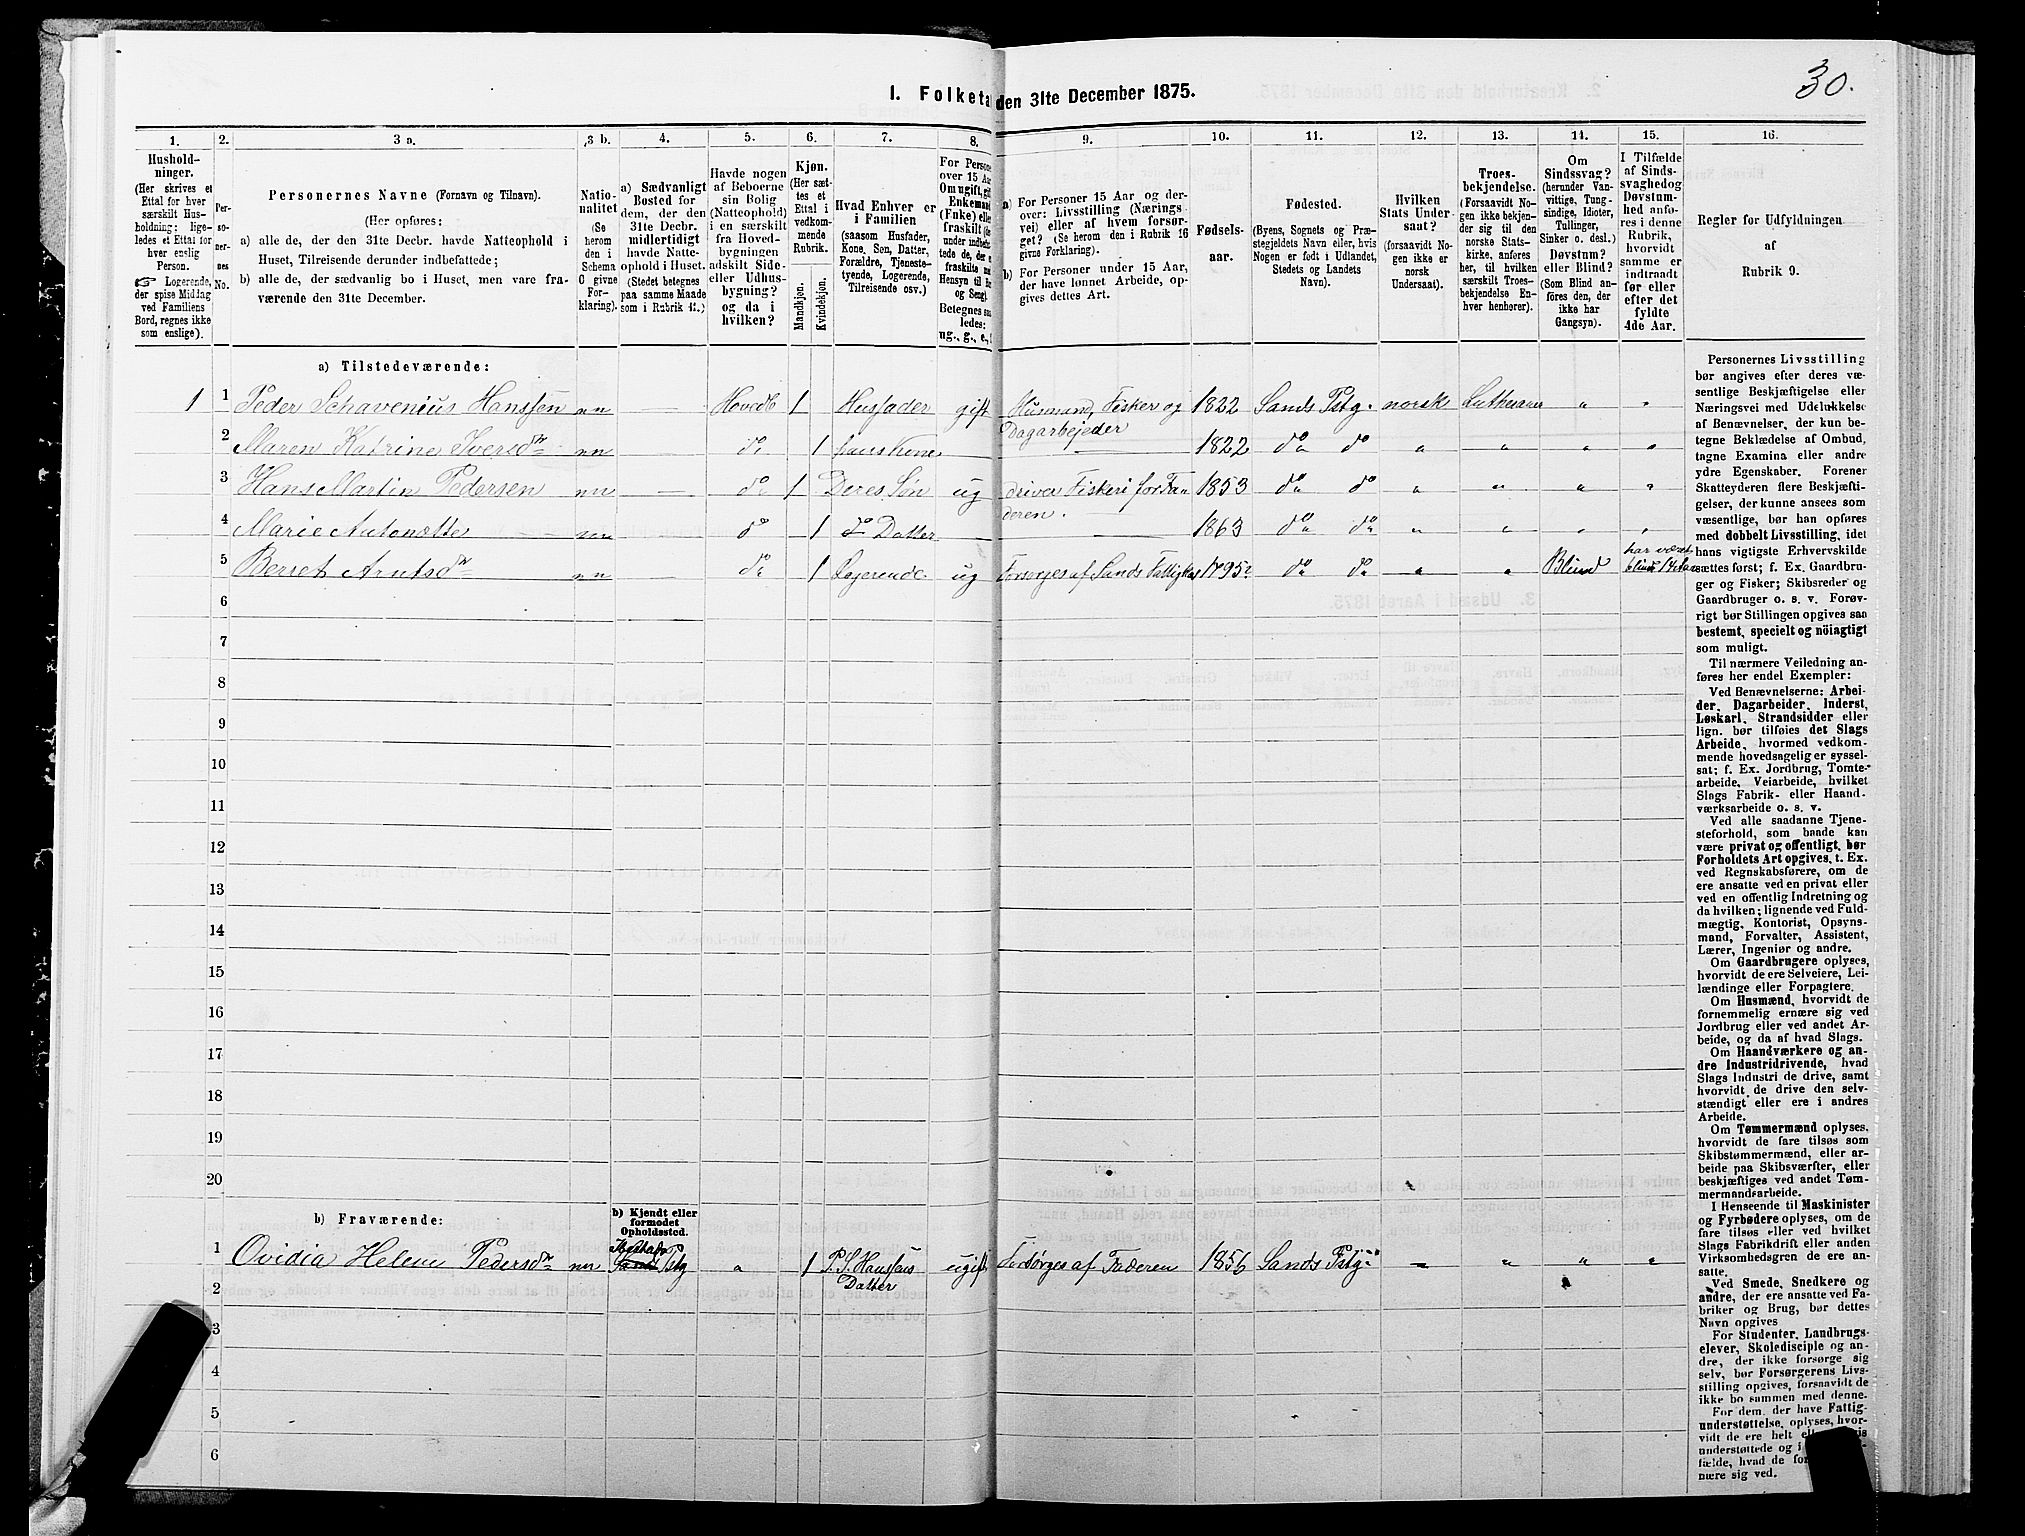 30.
1. Folketæ den 31te December 1875.
1. 2. 3 a. 3 b. 4. 5. 6. 7. 8. 9. 10. 11. 12. 13. 14. 15. 16.
Hushold-
ninger.
(Her skrives et
Ettal for hver
særskilt Hus-
holdning; lige-
ledes et Ettal for
hver enslig
Person.
☞ Logerende,
der spise Middag
ved Familiens
Bord, regnes ikke
som enslige).
Per-
so-
ner-
nes
No.
Personernes Navne (Fornavn og Tilnavn).
(Her opføres:
a) alle de, der den 31te Decbr. havde Natteophold i
Huset, Tilreisende derunder indbefattede;
b) alle de, der sædvanlig bo i Huset, men vare fra-
værende den 31te December.
Natio-
nalitet
(Se
herom
den i
Schema
O givne
For-
klaring).
a) Sædvanligt
Bosted for
dem, der den
31te Decbr.
midlertidigt
havde Natte-
ophold i Huset.
(Stedet betegnes
paa samme Maade
som i Rubrik 11.)
Havde nogen
af Beboerne
sin Bolig
(Natteophold)
i en særskilt
fra Hoved-
bygningen
adskilt Side-
eller Udhus-
bygning?
og da i
hvilken?
Kjøn.
(Her sæt-
tes et
Ettal i
vedkom-
mende
Rubrik.
Mandkjøn.
Kvindekjøn.
Hvad Enhver er
i Familien
(saasom Husfader,
Kone, Søn, Datter,
Forældre, Tjeneste-
tyende, Logerende,
Tilreisende osv.)
For Persone
over 15 Aa
Om ugift, gif
Enkemand
(Enke) elle
fraskilt
Betegnes saa
ledes:
ug., g., e.,
a) For Personer 15 Aar og der-
over: Livsstilling (Nærings-
vei) eller af hvem forsør-
get? (Se herom den i Rubrik 16
givne Forklaring).
b) For Personer under 15 Aar,
der have lønnet Arbeide, op-
gives dettes Art.
Fødsels-
aar.
Fødested.
(Byens, Sognets og Præ-
stegjeldets Navn eller, hvis
Nogen er født i Udlandet,
Stedets og Landets
Navn).
Hvilken
Stats Under-
saat?
(forsaavidt No-
gen ikke er
norsk
Undersaat).
Troes-
bekjendelse.
(Forsaavidt No-
gen ikke bekjen-
der sig til den
norske Stats-
kirke, anføres
her, til hvilken
særskilt Troes-
bekjendelse En-
hver henhører).
Om
Sindssvag?
(herunder Van-
vittige, Tung-
sindige, Idioter,
Tullinger,
Sinker o. desl.)
Døvstum?
eller Blind?
(Som Blind an-
føres den, der
ikke har
Gangsyn).
I Tilfælde
af Sinds-
svaghed og
Døvstum-
hed anfø-
res i denne
Rubrik,
hvorvidt
samme er
indtraadt
før eller
efter det
fyldte
4de Aar.
Regler for Udfyldningen
af
Rubrik 9.
a) Tilstedeværende:
1 1 Peder Schavenius Hanssen nn — Hovedb 1 Husfader gift Husmand, Fisker og Dagarbejeder 1822 Sands Pstg. norsk Lutheraner " "
2 Maren Katrine Iversdtr nn do 1 hans Kone — 1822 do do " " " "
3 Hans Martin Pedersen nn — do 1 Deres Søn ug driver Fiskeri for Faderen. 1853 do do " " " "
4 Marie Antonætte nn do 1 do Datter — 1863 do do " " " "
5 Berret Arntsdtr nn do 1 Logerende ug Forsørges af Sands Fattigkas 1795 do do " " Blind har været blind
6
7
8
9
10
11
12
13
14
15
16
17
18
19
20
b) Fraværende:
b) Kjendt eller
formodet
Opholdssted.
1 Ovidia Helene Pedersdtr nn Pstg " 1 P. S. Hanssens Datter ugift Forsørges af Faderen 1856 Sands Pstg. " " " "
2
3
4
5
6
Personernes Livsstilling
bør angives efter deres væ-
sentlige Beskjæftigelse eller
Næringsvei med Udelukkelse
af Benævnelser, der kun be-
tegne Beklædelse af Ombud,
tagne Examina eller andre
ydre Egenskaber. Forener
Skatteyderen flere Beskjæfti-
gelser, der kunne ansees som
væsentlige, bør han opføres
med dobbelt Livsstilling, idet
hans vigtigste Erhvervskilde
sættes først; f. Ex. Gaardbru-
ger og Fisker; Skibsreder og
Gaardbruger o. s. v. Forøv-
rigt bør Stillingen opgives saa
bestemt, specielt og nöiagtigt
som muligt.
Til nærmere Veiledning an-
føres her endel Exempler:
Ved Benævnelserne: Arbei-
der, Dagarbeider, Inderst,
Løskarl, Strandsidder eller
lign. bør tilføies det Slags
Arbeide, hvormed vedkom-
mende hovedsagelig er syssel-
sat; f. Ex. Jordbrug, Tomte-
arbeide, Veiarbeide, hvilket
Slags Fabrik- eller Haand-
værksarbeide o. s. v.
Ved alle saadanne Tjene-
steforhold, som baade kan
være privat og offentligt, bør
Forholdets Art opgives, t. Ex.
ved Regnskabsførere, om de
ere ansatte ved en privat eller
ved en offentlig Indretning og
da hvilken; lignende ved Fuld-
mægtig, Kontorist, Opsyns-
mand, Forvalter, Assistent,
Lærer, Ingeniør og andre.
Om Gaardbrugere oplyses,
hvorvidt de ere Selveiere, Lei-
lændinge eller Forpagtere.
Om Husmænd, hvorvidt de
fornemmelig ernære sig ved
Jordbrug eller ved andet Ar-
beide, og da af hvad Slags.
Om Haandværkere og an-
dre Industridrivende, hvad
Slags Industri de drive, samt
hvorvidt de drive den selv-
stændigt eller ere i andres
Arbeide.
Om Tømmermænd oplyses,
hvorvidt de fare tilsøs som
Skibstømmermænd, eller ar-
beide paa Skibsværfter, eller
beskjæftiges ved andet Tøm-
mermandsarbeide.
I Henseende til Maskinister
og Fyrbødere oplyses, om de
fare tilsøs eller ved hvilket
Slags Fabrikdrift eller anden
Virksomhedsgren de ere an-
satte.
Ved Smede, Snedkere og
andre, der ere ansatte ved Fa-
briker og Brug, bør dettes
Navn opgives
For Studenter, Landbrugs-
elever, Skoledisciple og an-
dre, der ikke forsørge sig
selv, bør Forsørgerens Livs-
stilling opgives, forsaavidt de
ikke bo sammen med denne.
For dem, der have Fattig-
understøttelse, oplyses, hvor-
vidt de ere helt
understøttede og i
fælde, hvad de for
nære sig ved.